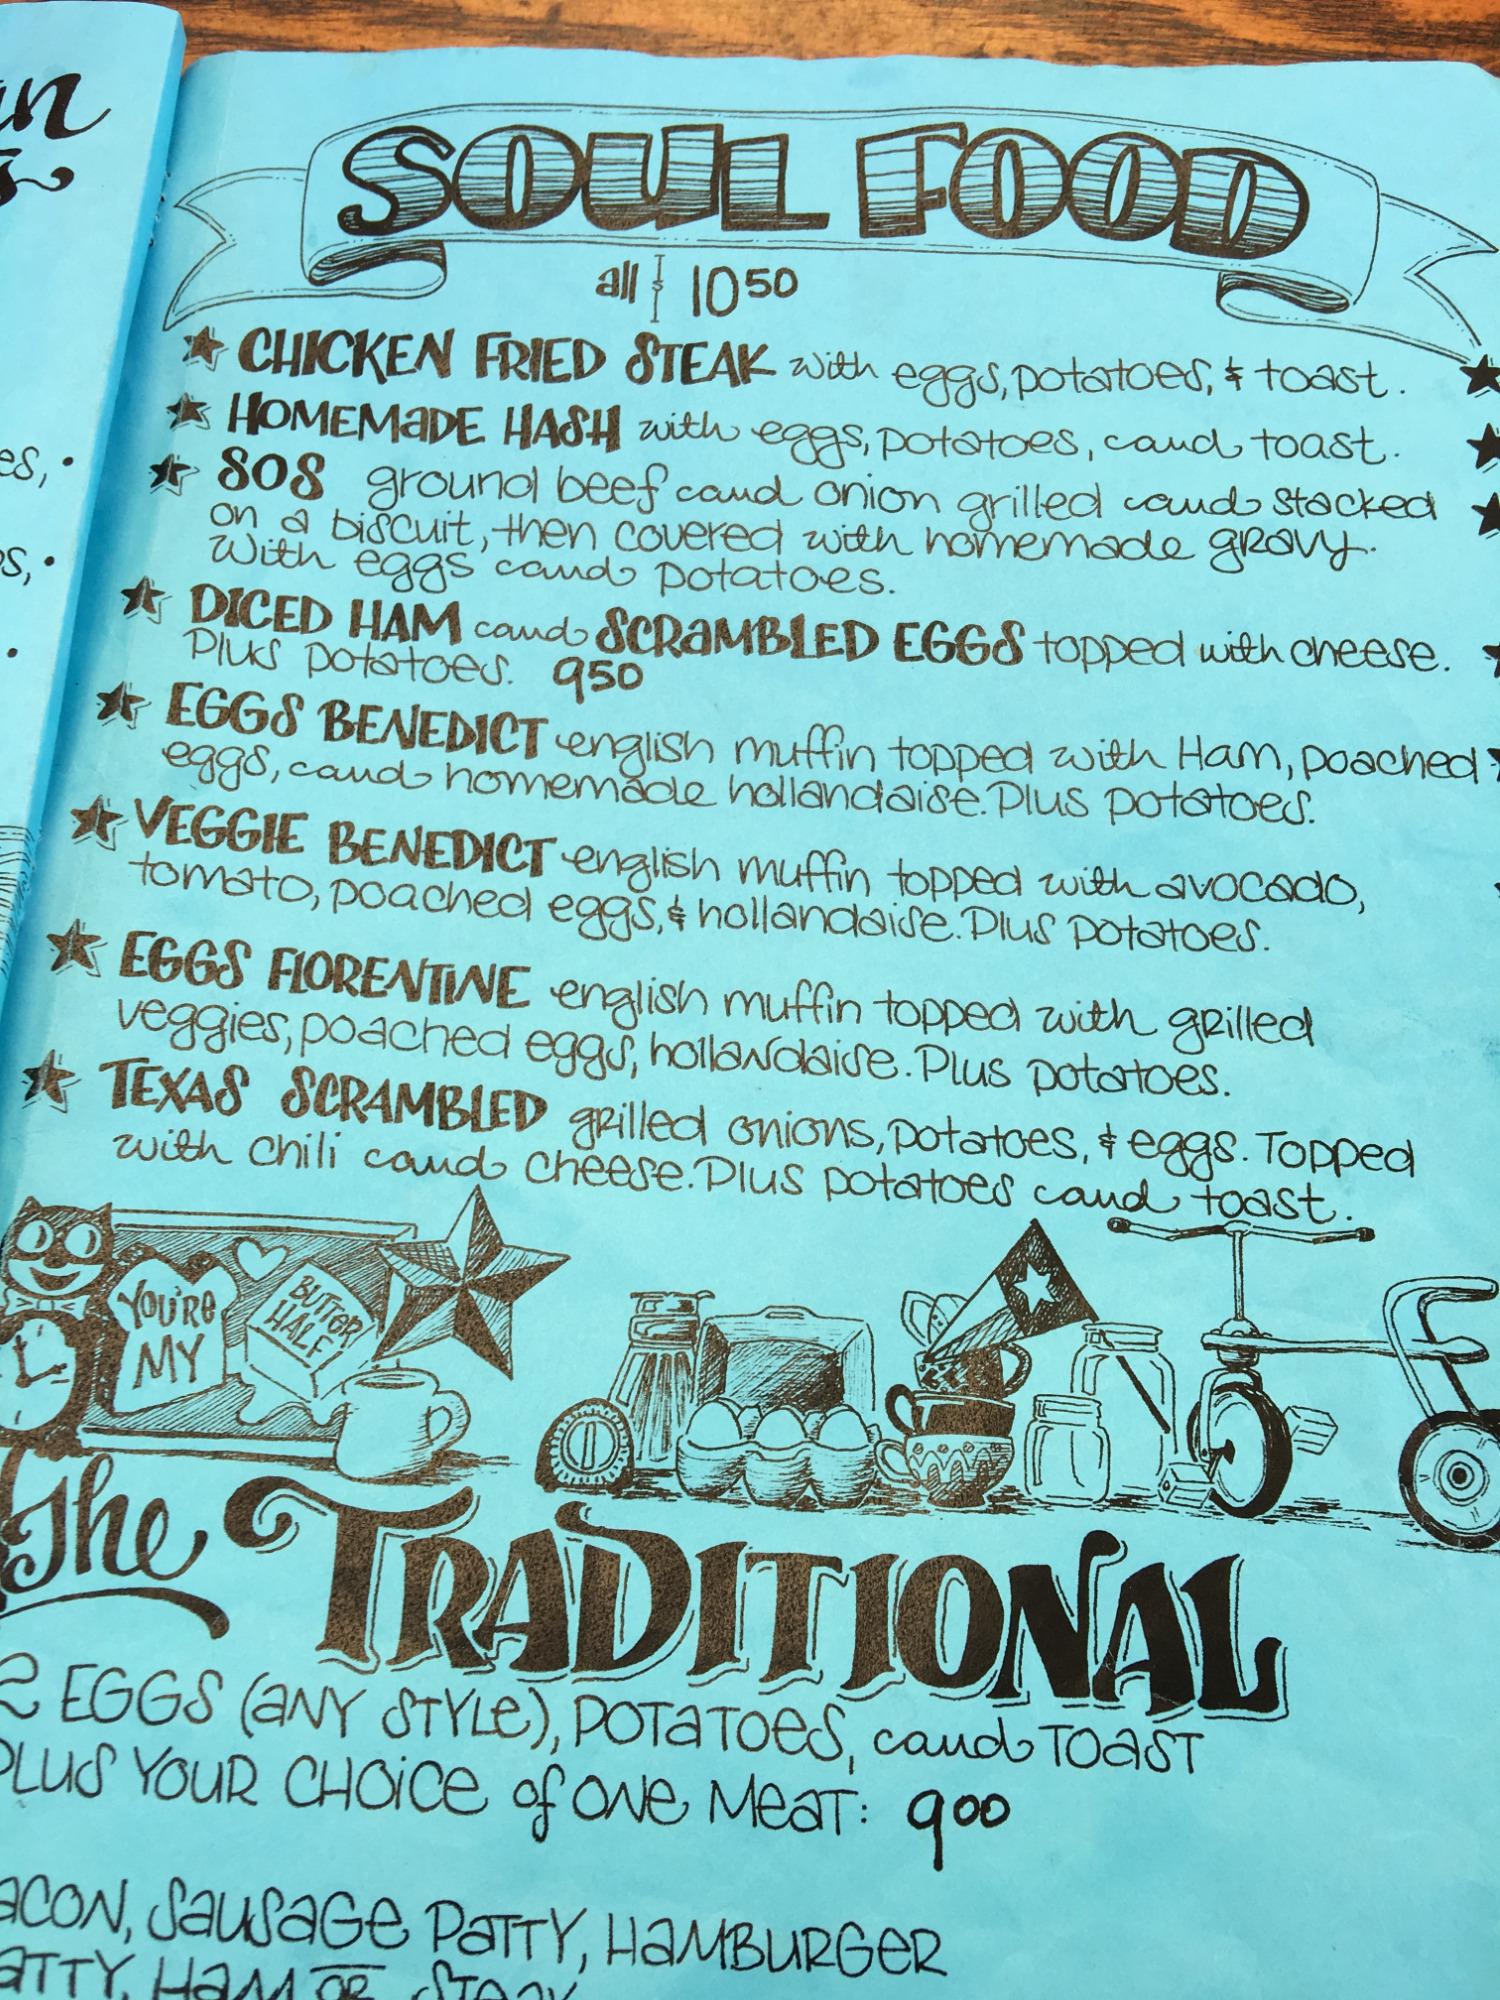 SOUL FOOD
all $ 10 50
CHICKEN FRIED STEAK with eggs, potatoes, & toast.
HOMEMADE HASH with eggs, potatoes, and toast.
SOS ground beef and onion grilled and stacked
on a biscuit, then covered with homemade gravy.
With eggs and potatoes.
DICED HAM and SCRAMBLED EGGS topped with cheese.
Plus potatoes. 950
EGGS BENEDICT english muffin topped with Ham, poached
eggs, and homemade hollandaise. Plus potatoes.
VEGGIE BENEDICT english muffin topped with avocado,
tomato, poached eggs, & hollandaise. Plus potatoes.
EGGS FLORENTINE english muffin topped with grilled
veggies, poached eggs, hollandaise. Plus potatoes.
TEXAS SCRAMBLED grilled onions, potatoes, & eggs. Topped
with chili and cheese. Plus potatoes and toast.
YOU'RE
MY
BUTTER
HALF
The TRADITIONAL
2 EGGS (ANY STYLE), POTATOES, and TOAST
PLUS YOUR CHOICE of ONE MEAT: 900
ACON, SAUSAGE PATTY, HAMBURGER
ATTY, HAM OR STEAK